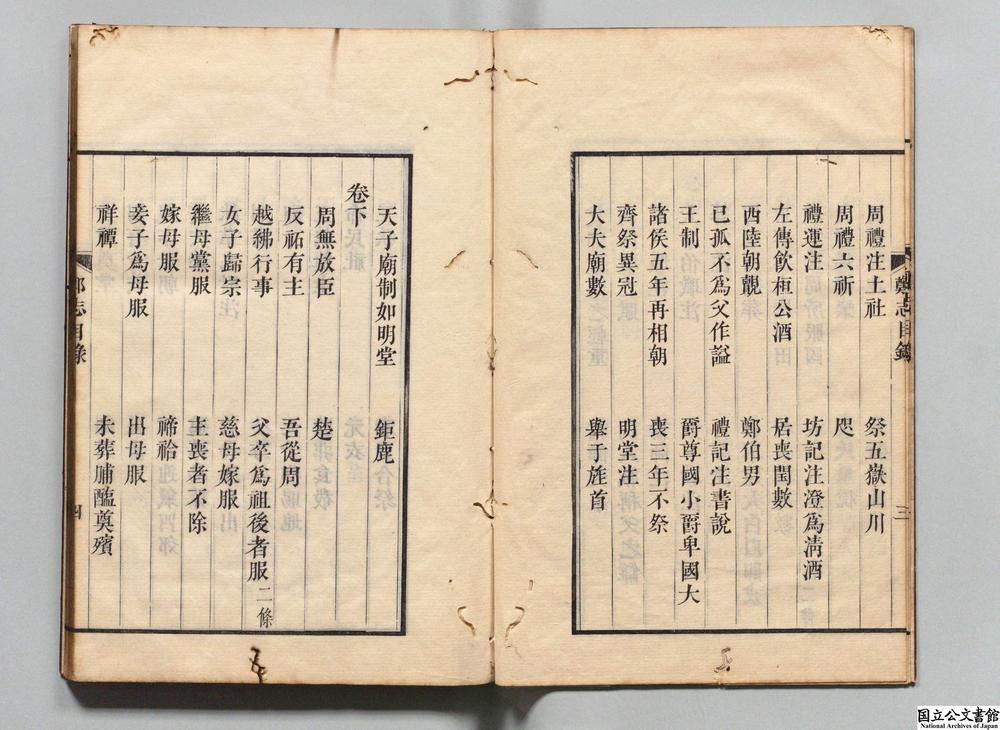 鄭志目錄 三
周禮注土社 祭五嶽山川
周禮六祈 咫
禮運注 坊記注澄爲淸酒
左傳飲桓公酒 居喪閏數
西陸朝覿 鄭伯男
已孤不爲父作謚 禮記注書說
王制 爵尊國小爵卑國大
諸侯五年再相朝 喪三年不祭
齊祭異冠 明堂注
大夫廟數 舉于旌首
天子廟制如明堂 鉅鹿
卷下
周無放臣 楚
反祏有主 吾從周
越紼行事 父卒爲祖後者服二條
女子歸宗 慈母嫁服
繼母黨服 主喪者不除
嫁母服 禘祫
妾子爲母服 出母服
祥禫 未葬脯醢奠殯
鄭志目錄 四
国立公文書館
National Archives of Japan